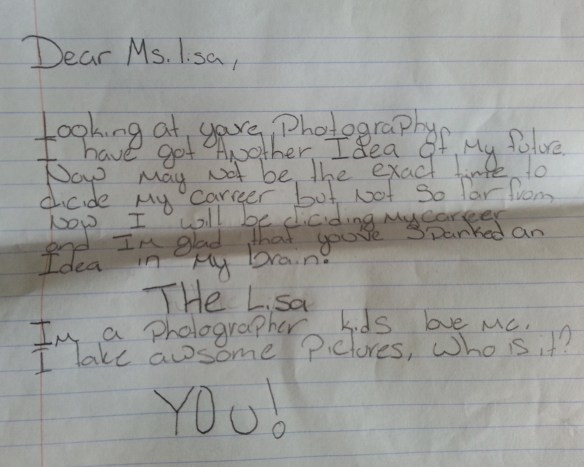 Dear Ms. Lisa,
Looking at youre Photography,
I have got Another Idea of My future.
Now May Not be the exact time to
dicide My carreer but Not So far from
Now I will be diciding My carreer
and I'm glad that you've Sparked an
Idea in My brain.
THe Lisa
Im a photographer kids love me.
I take awsome Pictures, Who is it?
YOu!